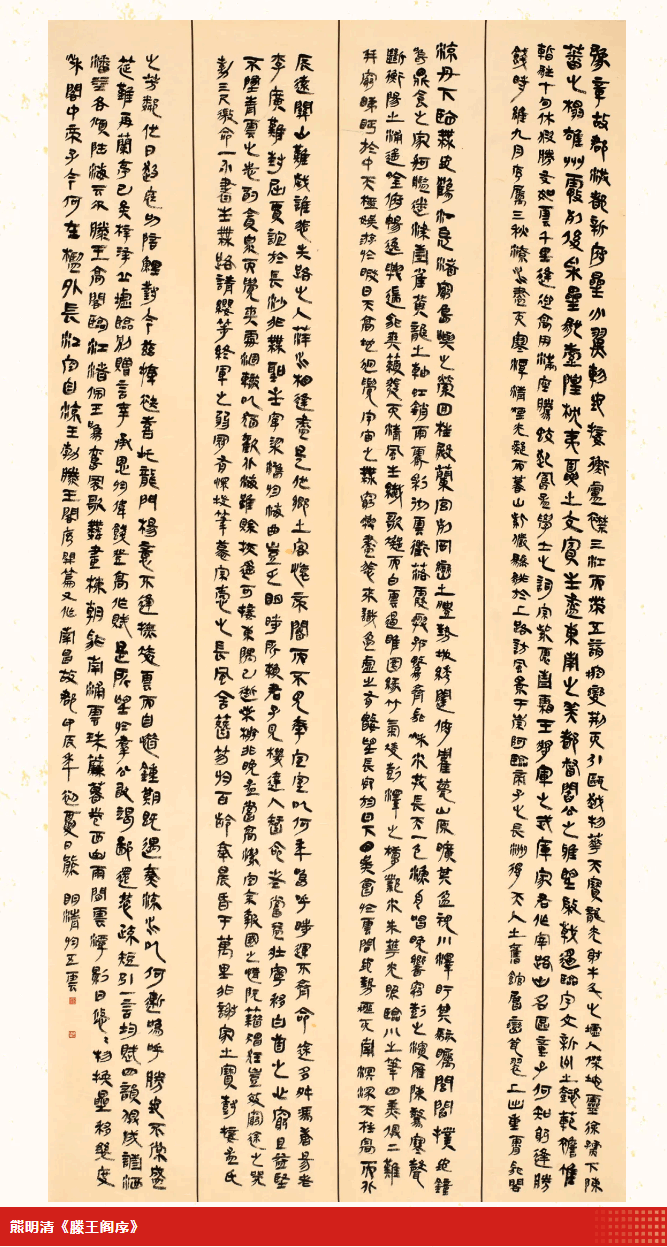 豫章故郡洪都新府星分翼軫地接衡廬襟三江而帶五湖控蠻荊而引甌越物華天寶龍光射牛斗之墟人傑地靈徐孺下陳
蕃之榻雄州霧列俊采星馳臺隍枕夷夏之交賓主盡東南之美都督閻公之雅望棨戟遙臨宇文新州之懿範襜帷
暫駐十旬休假勝友如雲千里逢迎高朋滿座騰蛟起鳳孟學士之詞宗紫電青霜王將軍之武庫家君作宰路出名區童子何知躬逢勝
餞時維九月序屬三秋潦水盡而寒潭清煙光凝而暮山紫儼驂騑於上路訪風景于崇阿臨帝子之長洲得天人之舊館層巒聳翠上出重霄飛閣
流丹下臨無地鶴汀鳧渚窮島嶼之縈回桂殿蘭宮列岡巒之體勢披繡闥俯雕甍山原曠其盈視川澤盱其駭矚閭閻撲地鐘
鳴鼎食之家舸艦迷津青雀黃龍之軸虹銷雨霽彩徹雲衢落霞與孤鶩齊飛秋水共長天一色漁舟唱晚響窮彭之濱雁陣驚寒聲
斷衡陽之浦遙吟俯暢逸興遄飛爽籟發而清風生纖歌凝而白雲遏睢園綠竹氣凌彭澤之樽鄴水朱華光照臨川之筆四美俱二難
并窮睇眄於中天極娛游於暇日天高地迥覺宇宙之無窮興盡悲來識盈虛之有數望長安於日下目吳會於雲間地勢極而南溟深天柱高而北
辰遠關山難越誰悲失路之人萍水相逢盡是他鄉之客懷帝閽而不見奉宣室以何年嗚呼時運不齊命途多舛馮唐易老
李廣難封屈賈誼於長沙非無聖主竄梁鴻於海曲豈乏明時所賴君子見機達人知命老當益壯寧移白首之心窮且益堅
不墜青雲之志酌貪泉而覺爽處涸轍以猶歡北海雖賒扶搖可接東隅已逝桑榆非晚孟嘗高潔空餘報國之情阮籍猖狂豈效窮途之哭
勃三尺微命一介書生無路請纓等終軍之弱冠有懷投筆慕宗愨之長風舍簪笏於百齡奉晨昏于萬里非謝家之寶樹接孟氏
之芳鄰他日趨庭叨陪鯉對今茲捧袂喜托龍門楊意不逢撫凌雲而自惜鍾期既遇奏流水以何慚嗚呼勝地不常盛
筵難再蘭亭已矣梓澤丘墟臨別贈言幸承恩於偉餞登高作賦是所望於群公敢竭鄙懷恭疏短引一言均賦四韻俱成請灑
潘江各傾陸海云爾滕王高閣臨江渚佩玉鳴鸞罷歌舞畫棟朝飛南浦雲珠簾暮卷西山雨閒雲潭影日悠悠物換星移幾度
秋閣中帝子今何在檻外長江空自流王勃滕王閣序開篇又作南昌故郡甲辰年初夏日熊明清於五雲
熊明清《滕王阁序》